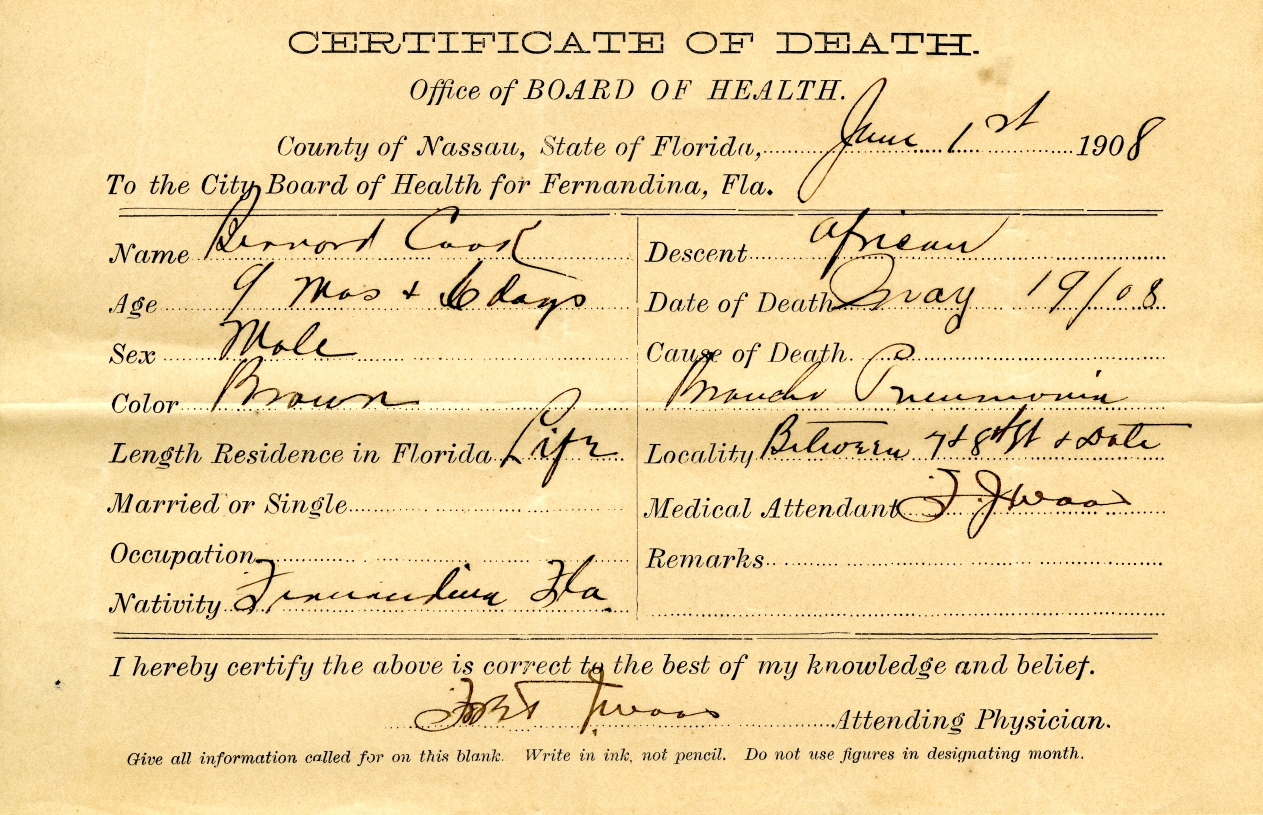 CERTIFICATE OF DEATH.
Office of BOARD OF HEALTH.
County of Nassau, State of Florida, June 1st 1908
To the City Board of Health for Fernandina, Fla.
Name Bernord Cook
Age 9 mos + 6 days
Sex Male
Color Brown
Length Residence in Florida Life
Married or Single
Occupation
Nativity Fernandina Fla.
Descent African
Date of Death May 19/08
Cause of Death
Broncho Pneumonia
Locality Between 7 + 8th St + Date
Medical Attendant
Remarks
I hereby certify the above is correct to the best of my knowledge and belief.
Attending Physician.
Give all information called for on this blank. Write in ink, not pencil. Do not use figures in designating month.